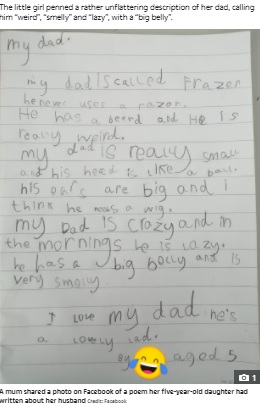 The little girl penned a rather unflattering description of her dad, calling
him "weird", "smelly" and "lazy", with a "big belly".
my dad.
my dad is called Frazer
he never uses a razor.
He has a beerd and He is
really weird.
my dad is really small
and his heed is like a ball.
his ears are big and i
think he has a wig.
my Dad is crazy and in
the mornings he is lazy.
he has a big belly and is
very smelly.
I love my dad he's
a lovely lad.
By aged 5
1
A mum shared a photo on Facebook of a poem her five-year-old daughter had
written about her husband Credit: Facebook